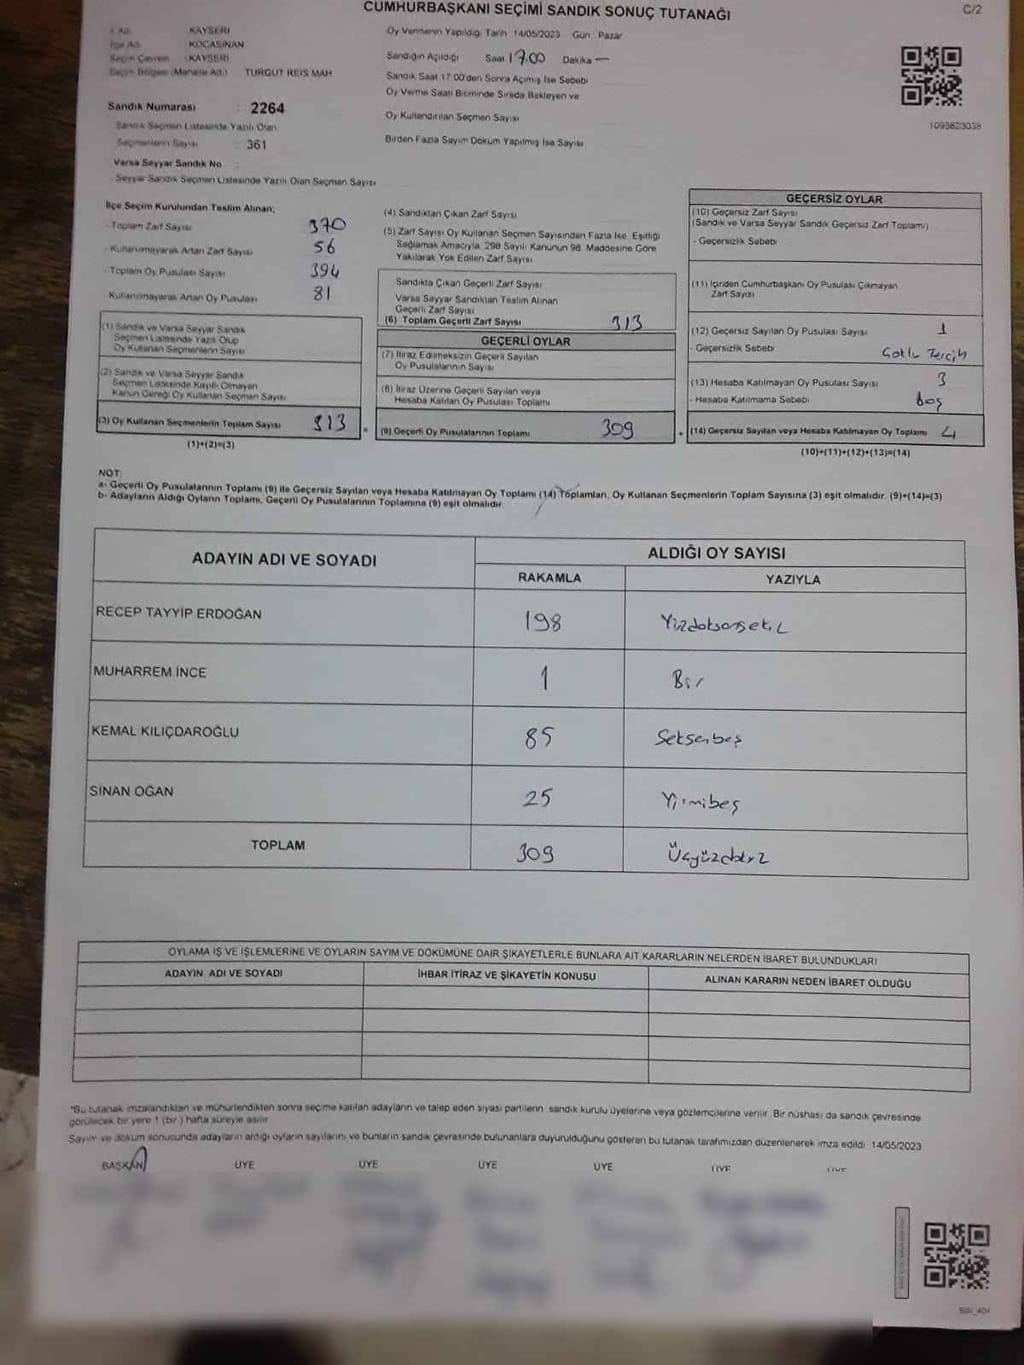 CUMHURBAŞKANI SEÇİMİ SANDIK SONUÇ TUTANAĞI
C/2
İl Adı KAYSERİ
İlçe Adı KOCASİNAN
Seçim Çevresi KAYSERİ
Seçim Bölgesi (Mahalle Adı) TURGUT REİS MAH.
Sandık Numarası : 2264
Sandık Seçmen Listesinde Yazılı Olan
Seçmenlerin Sayısı : 361
Varsa Seyyar Sandık No :
- Seyyar Sandık Seçmen Listesinde Yazılı Olan Seçmen Sayısı
Oy Vermenin Yapıldığı Tarih 14/05/2023 Gün : Pazar
Sandığın Açıldığı Saat 17.00 Dakika —
Sandık Saat 17:00'den Sonra Açılmış İse Sebebi
Oy Verme Saati Bitiminde Sırada Bekleyen ve
Oy Kullandırılan Seçmen Sayısı
Birden Fazla Sayım Döküm Yapılmış İse Sayısı
1093823038
İlçe Seçim Kurulundan Teslim Alınan;
- Toplam Zarf Sayısı 370
- Kullanılmayarak Artan Zarf Sayısı 56
- Toplam Oy Pusulası Sayısı 394
Kullanılmayarak Artan Oy Pusulası 81
(1) Sandık ve Varsa Seyyar Sandık
Seçmen Listesinde Yazılı Olup
Oy Kullanan Seçmenlerin Sayısı
(2) Sandık ve Varsa Seyyar Sandık
Seçmen Listesinde Kayıtlı Olmayan
Kanun Gereği Oy Kullanan Seçmen Sayısı
(3) Oy Kullanan Seçmenlerin Toplam Sayısı 313
(1)+(2)=(3)
=
(4) Sandıktan Çıkan Zarf Sayısı
(5) Zarf Sayısı Oy Kullanan Seçmen Sayısından Fazla İse, Eşitliği
Sağlamak Amacıyla, 298 Sayılı Kanunun 98. Maddesine Göre
Yakılarak Yok Edilen Zarf Sayısı
Sandıkta Çıkan Geçerli Zarf Sayısı
Varsa Seyyar Sandıktan Teslim Alınan
Geçerli Zarf Sayısı
(6) Toplam Geçerli Zarf Sayısı 313
GEÇERLİ OYLAR
(7) İtiraz Edilmeksizin Geçerli Sayılan
Oy Pusulalarının Sayısı
(8) İtiraz Üzerine Geçerli Sayılan veya
Hesaba Katılan Oy Pusulası Toplamı
(9) Geçerli Oy Pusulalarının Toplamı 309
+
GEÇERSİZ OYLAR
(10) Geçersiz Zarf Sayısı
(Sandık ve Varsa Seyyar Sandık Geçersiz Zarf Toplamı)
- Geçersizlik Sebebi
(11) İçinden Cumhurbaşkanı Oy Pusulası Çıkmayan
Zarf Sayısı
(12) Geçersiz Sayılan Oy Pusulası Sayısı 1
- Geçersizlik Sebebi Çoklu Tercih
(13) Hesaba Katılmayan Oy Pusulası Sayısı 3
- Hesaba Katılmama Sebebi boş
(14) Geçersiz Sayılan veya Hesaba Katılmayan Oy Toplamı 4
(10)+(11)+(12)+(13)=(14)
NOT:
a- Geçerli Oy Pusulalarının Toplamı (9) ile Geçersiz Sayılan veya Hesaba Katılmayan Oy Toplamı (14) Toplamları, Oy Kullanan Seçmenlerin Toplam Sayısına (3) eşit olmalıdır. (9)+(14)=(3)
b- Adayların Aldığı Oyların Toplamı, Geçerli Oy Pusulalarının Toplamına (9) eşit olmalıdır.
ADAYIN ADI VE SOYADI
ALDIĞI OY SAYISI
RAKAMLA YAZIYLA
RECEP TAYYİP ERDOĞAN 198 Yüzdoksansekiz
MUHARREM İNCE 1 Bir
KEMAL KILIÇDAROĞLU 85 Seksenbeş
SİNAN OĞAN 25 Yirmibeş
TOPLAM 309 Üçyüzdokuz
OYLAMA İŞ VE İŞLEMLERİNE VE OYLARIN SAYIM VE DÖKÜMÜNE DAİR ŞİKAYETLERLE BUNLARA AİT KARARLARIN NELERDEN İBARET BULUNDUKLARI
ADAYIN ADI VE SOYADI İHBAR İTİRAZ VE ŞİKAYETİN KONUSU ALINAN KARARIN NEDEN İBARET OLDUĞU
*Bu tutanak imzalandıktan ve mühürlendikten sonra seçime katılan adayların ve talep eden siyasi partilerin sandık kurulu üyelerine veya gözlemcilerine verilir. Bir nüshası da sandık çevresinde
görülecek bir yere 1 (bir) hafta süreyle asılır
Sayım ve döküm sonucunda adayların aldığı oyların sayılarını ve bunların sandık çevresinde bulunanlara duyurulduğunu gösteren bu tutanak tarafımızdan düzenlenerek imza edildi. 14/05/2023
BAŞKAN ÜYE ÜYE ÜYE ÜYE ÜYE ÜYE